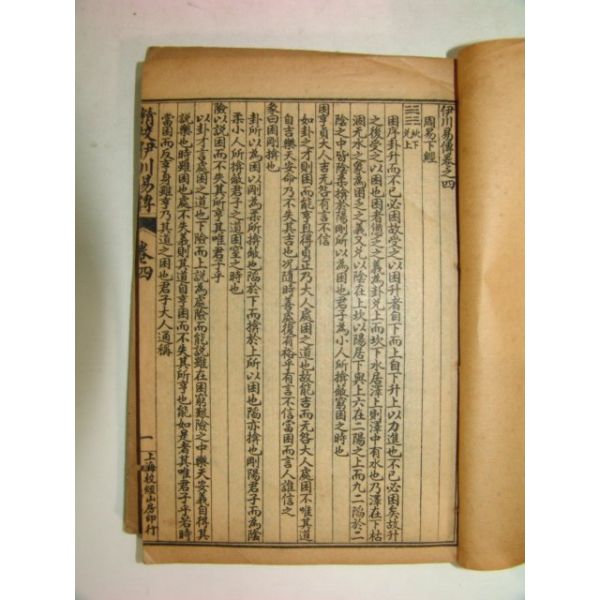 伊川易傳卷之四
周易下經
坎下
兌上
困序卦升而不已必困故受之以困升者自下而上自下升上以力進也不已必困矣故升
之後受之以困也困者憊乏之義為卦兌上而坎下水居澤上則澤中有水也乃澤在下枯
涸无水之象為困乏之義又兌以陰在上坎以陽居下與上六在二陽之上而九二陷於二
陰之中皆陰柔揜於陽剛所以為困也君子為小人所揜蔽窮困之時也
困亨貞大人吉无咎有言不信
如卦之才則困而能亨且得貞正乃大人處困之道也故能吉而无咎大人處困不唯其道
自吉樂天安命乃不失其吉也况隨時善處復有裕乎有言不信當困而言人誰信之
彖曰困剛揜也
卦所以為困以剛為柔所揜蔽也陷於下而揜於上所以困也陷亦揜也剛陽君子而為陰
柔小人所揜蔽君子之道困窒之時也
險以說困而不失其所亨其唯君子乎
以卦才言處困之道也下險而上說為處險而能說雖在困窮艱險之中樂天安義自得其
說樂也時雖困也處不失義則其道自亨困而不失其所亨也能如是者其唯君子乎若時
當困而反亨身雖亨乃其道之困也君子大人通稱
伊川易傳
卷四
一
上海校經山房印行